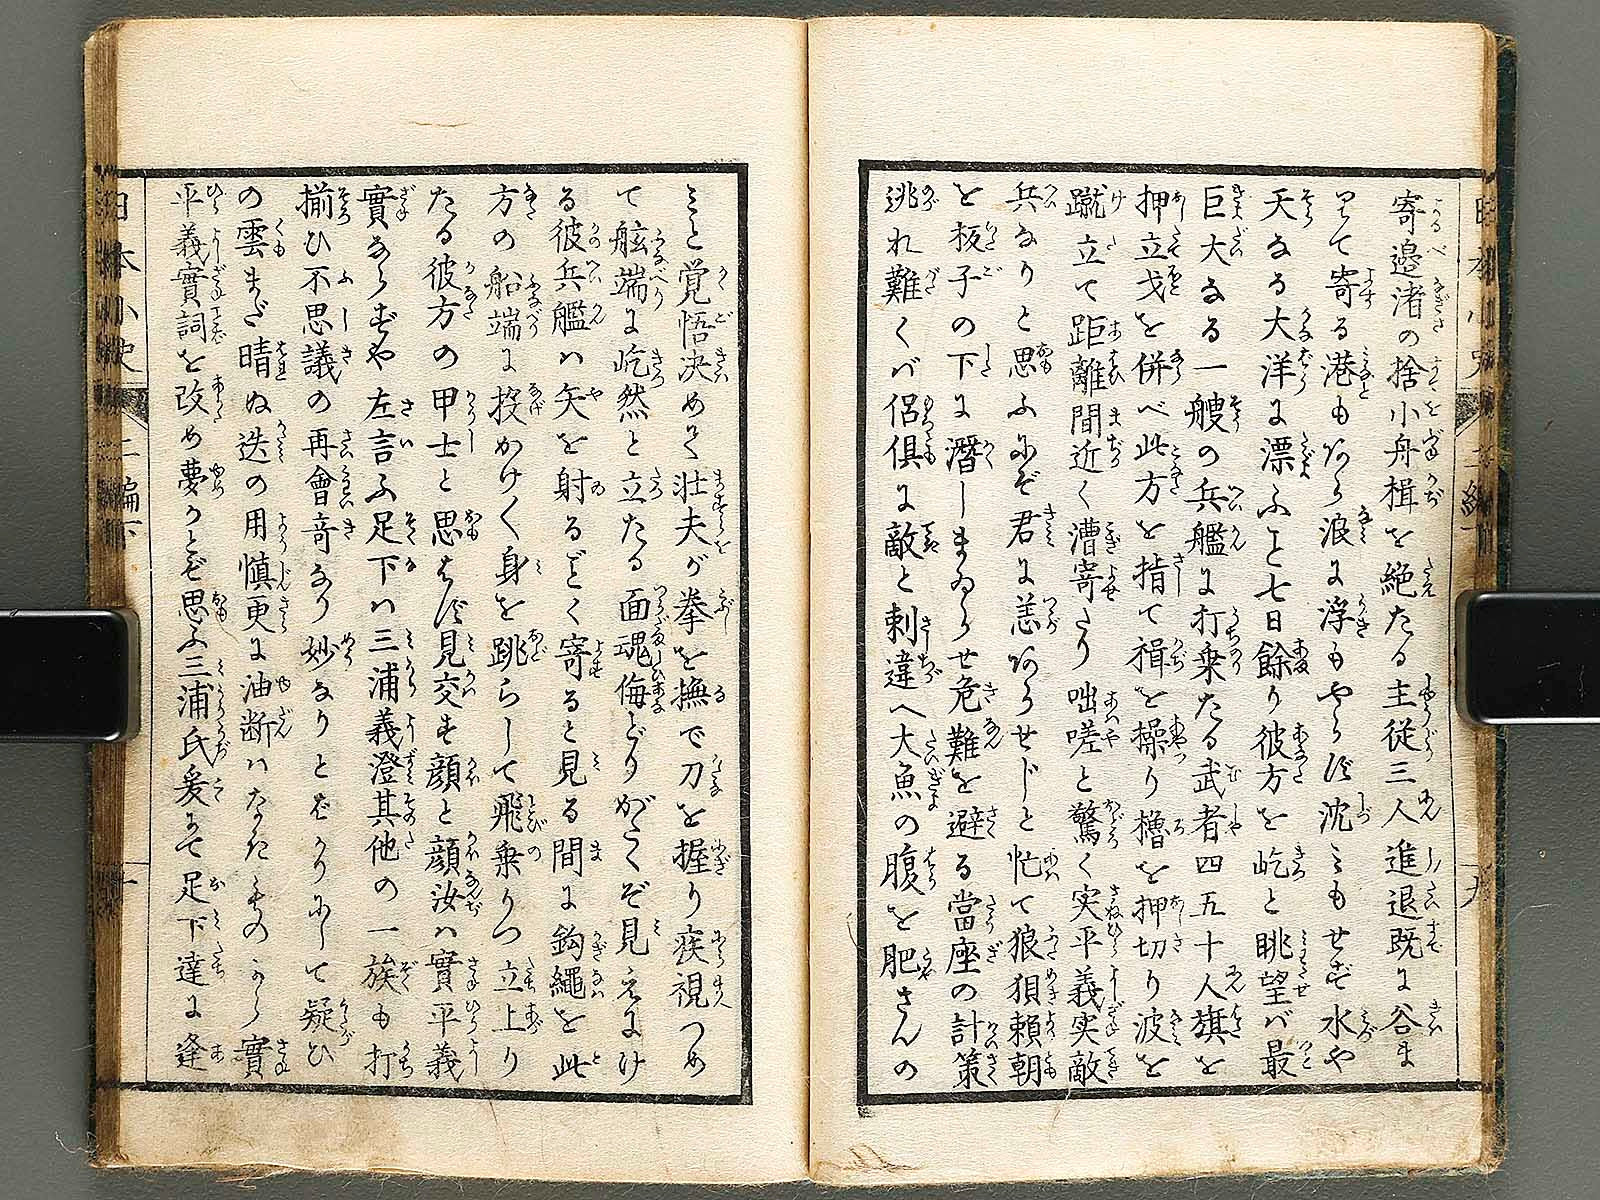 寄邊渚の捨小舟楫を絶たる主従三人進退既に谷ま
りて寄る港もあら浪に浮もやらず沈みもせず水や
天なる大洋に漂ふこと七日餘り彼方を屹と眺望ば最
巨大なる一艘の兵艦に打乗たる武者四五十人旗を
押立戈を併べ此方を指て楫を操り櫓を押切り波を
蹴立て距離間近く漕寄たり咄嗟と驚く実平義実敵
兵なりと思ふにぞ君に恙あらせじと忙て狼狽頼朝
を板子の下に潜しまゐらせ危難を避る當座の計策
逃れ難くバ侶倶に敵と刺違へ大魚の腹を肥さんの
みと覚悟決めて壮夫が拳を撫で刀を握り疾視つめ
て舷端に屹然と立たる面魂侮どりがたくぞ見えにけ
る彼兵艦ハ矢を射るごとく寄ると見る間に鈎繩を此
方の船端に投かけ〱身を跳らして飛乗りつ立上り
たる彼方の甲士と思はず見交す顔と顔汝ハ實平義
實ならずや左言ふ足下ハ三浦義澄其他の一族も打
揃ひ不思議の再會奇なり妙なりとばかりにして疑ひ
の雲まだ晴ぬ迭の用慎更に油断ハなたなものから實
平義實詞を改め夢かとぞ思ふ三浦氏爰にて足下達に逢
日本小史
二編下
十